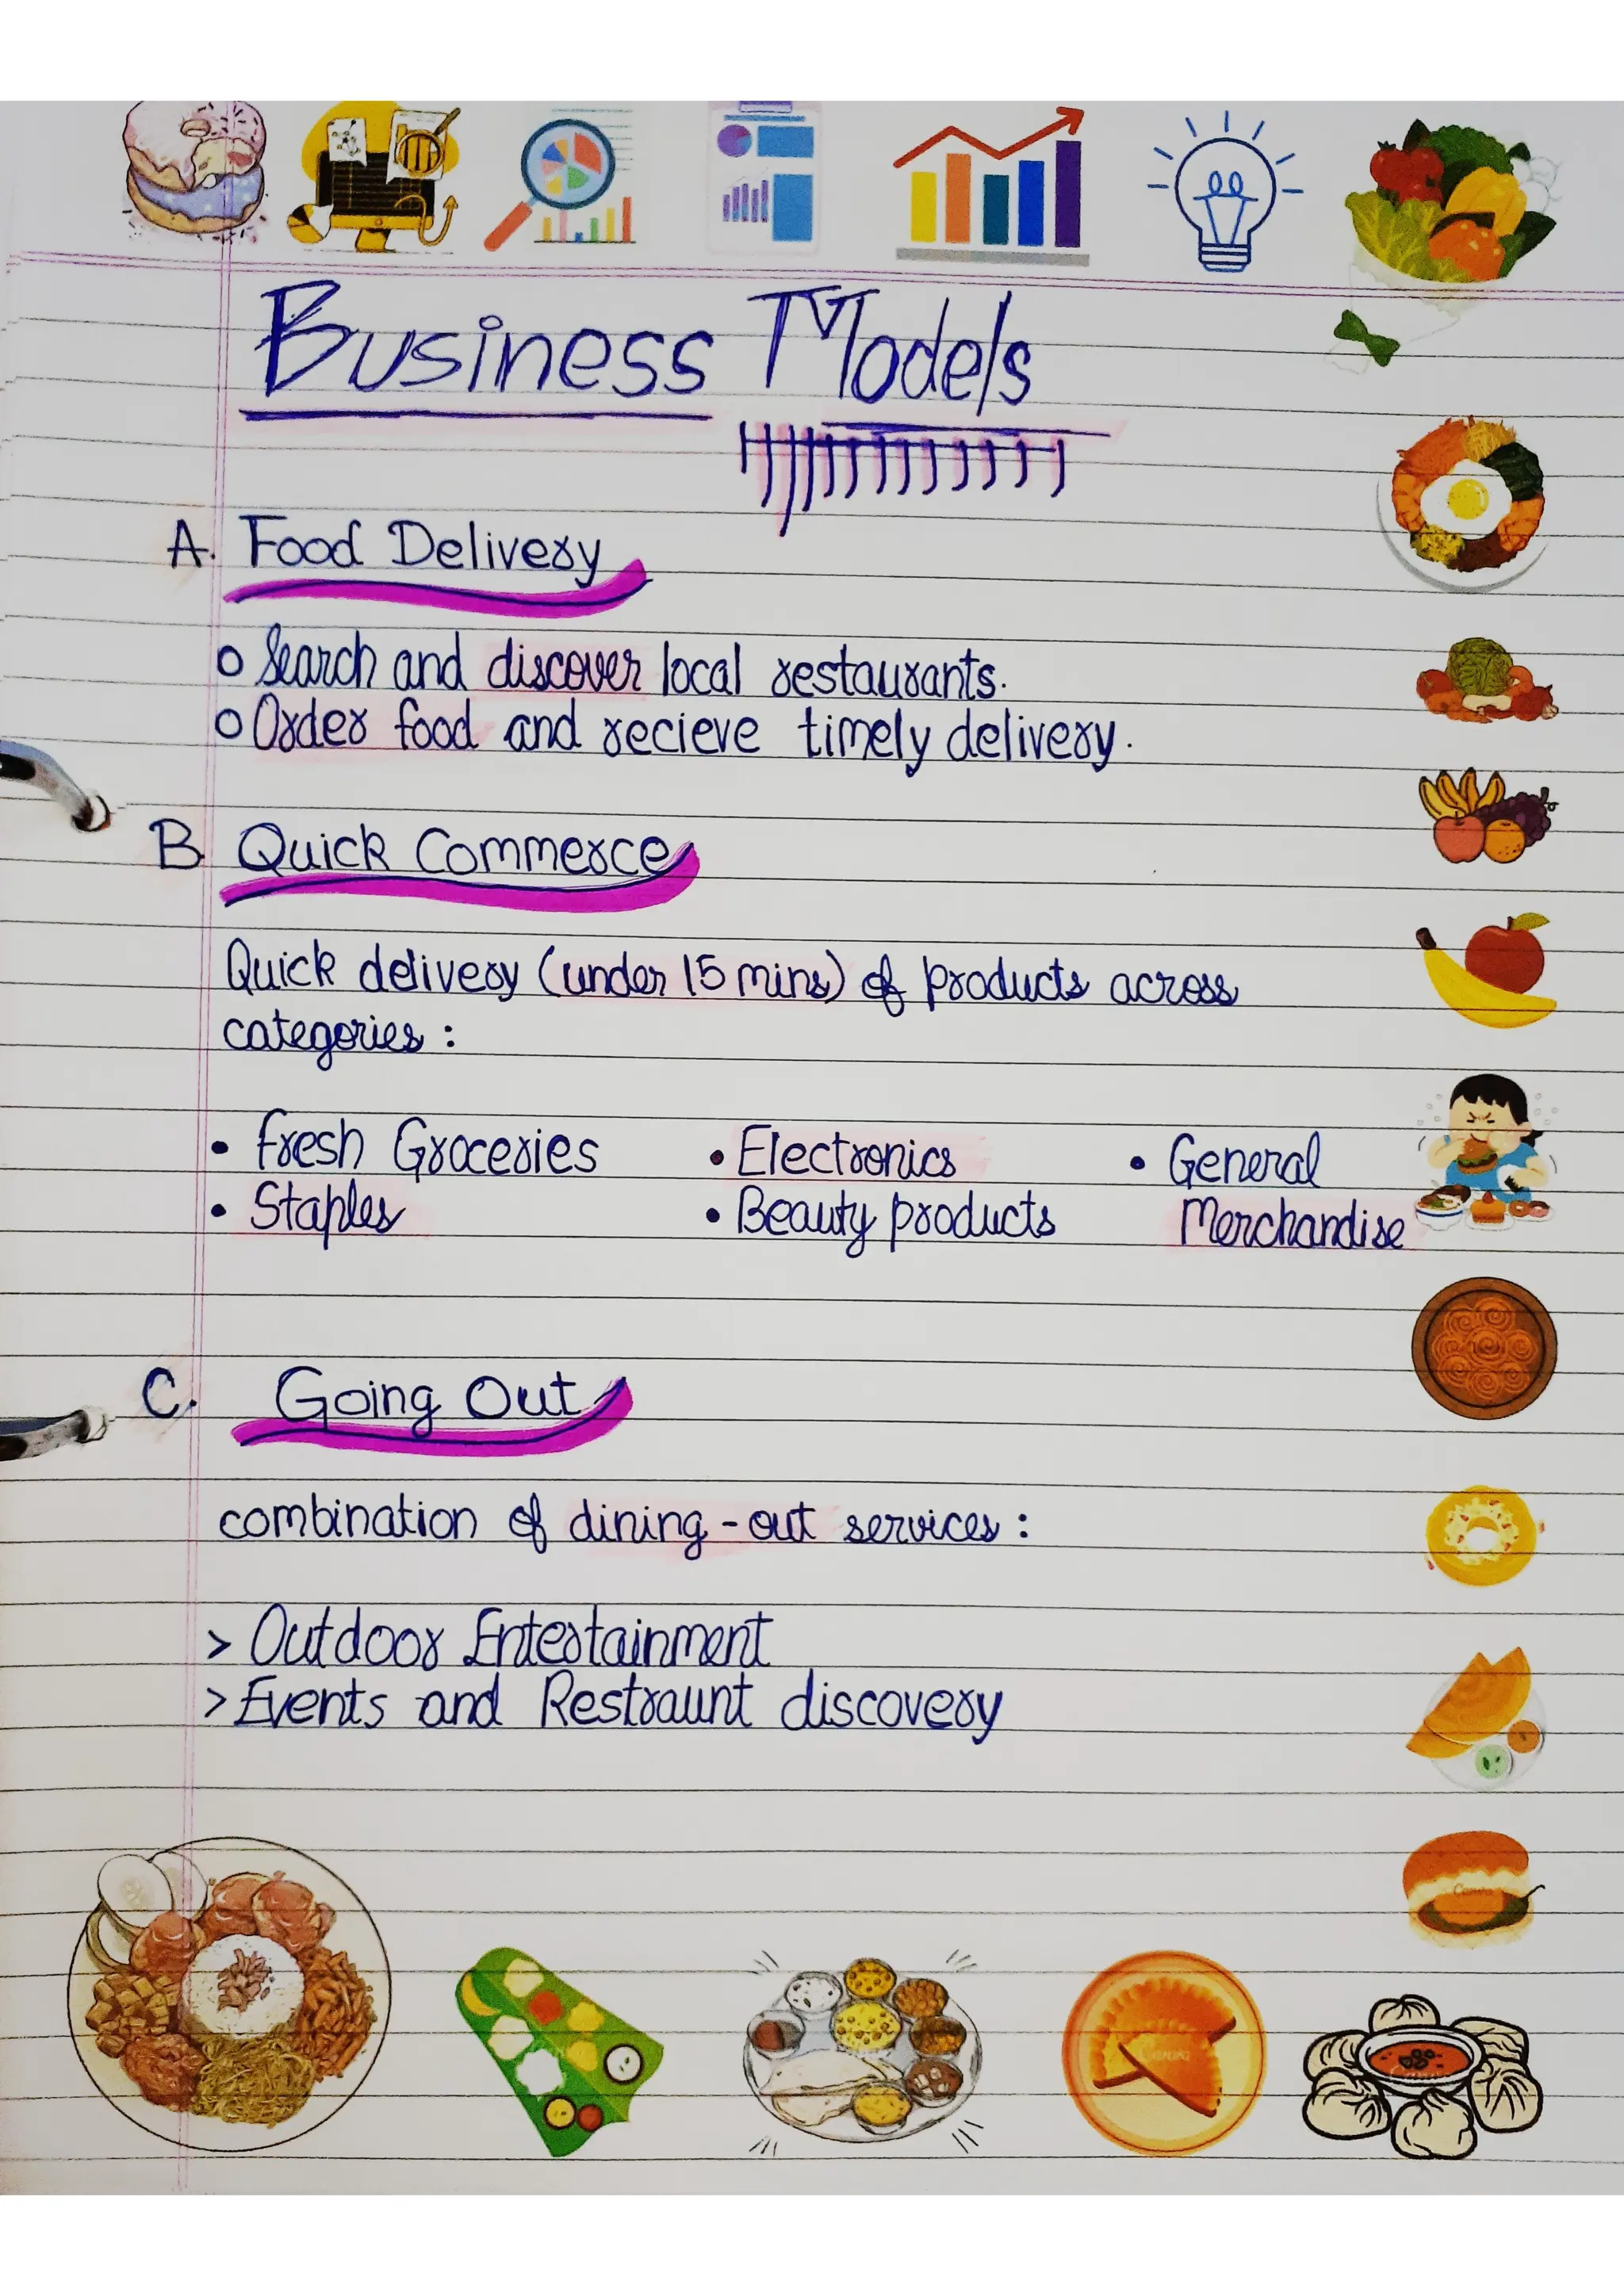 Business Models
A. Food Delivery
o Search and discover local restaurants.
o Order food and recieve timely delivery.
B. Quick Commerce
Quick delivery (under 15 mins) of products across
categories :
• Fresh Groceries • Electronics • General
• Staples • Beauty products Merchandise
C. Going Out
combination of dining-out services :
> Outdoor Entertainment
> Events and Restraunt discovery